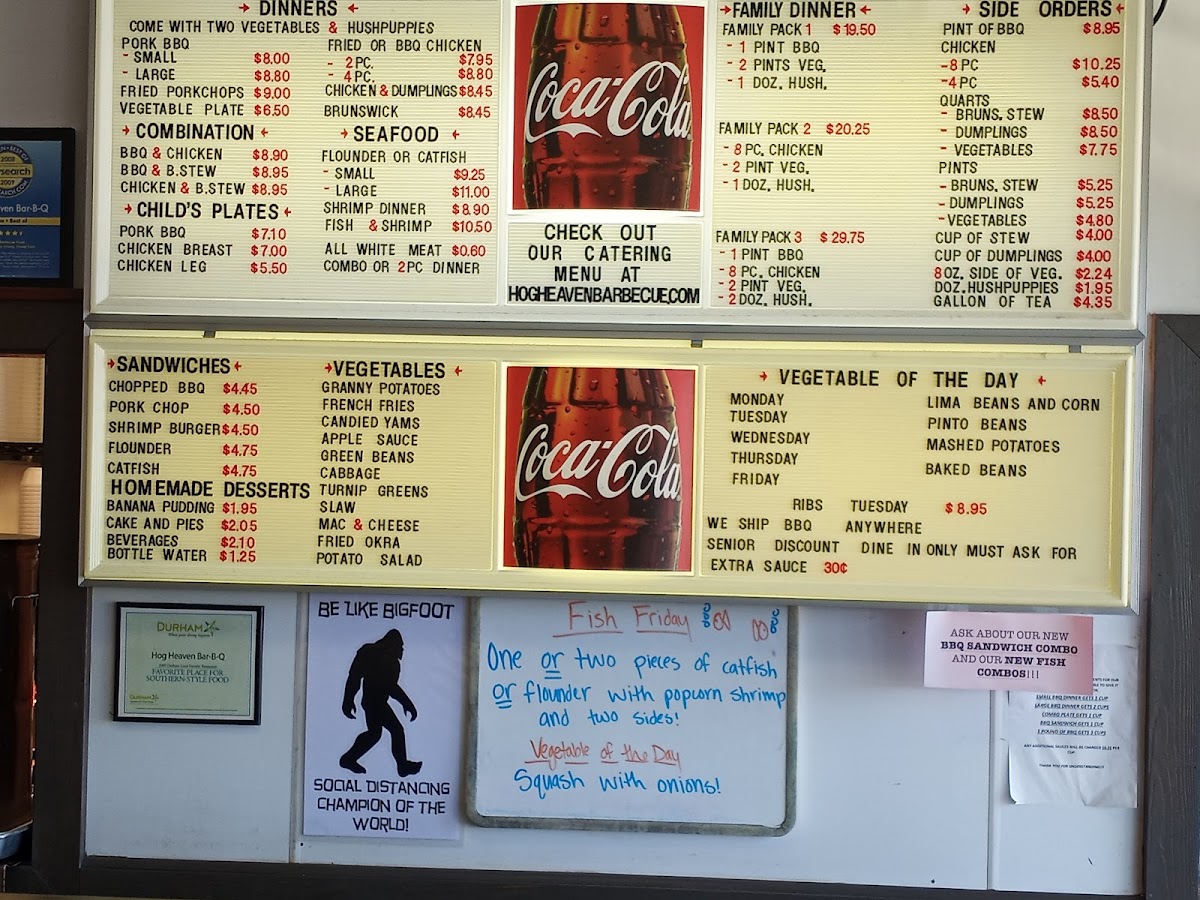 →DINNERS←
COME WITH TWO VEGETABLES & HUSHPUPPIES
PORK BBQ
- SMALL $8.00
- LARGE $8.80
FRIED PORKCHOPS $9.00
VEGETABLE PLATE $6.50
→COMBINATION←
BBQ & CHICKEN $8.90
BBQ & B.STEW $8.95
CHICKEN & B.STEW $8.95
→CHILD'S PLATES←
PORK BBQ $7.10
CHICKEN BREAST $7.00
CHICKEN LEG $5.50
FRIED OR BBQ CHICKEN
- 2PC. $7.95
- 4PC. $8.80
CHICKEN & DUMPLINGS $8.45
BRUNSWICK $8.45
→SEAFOOD←
FLOUNDER OR CATFISH
- SMALL $9.25
- LARGE $11.00
SHRIMP DINNER $8.90
FISH & SHRIMP $10.50
ALL WHITE MEAT $0.60
COMBO OR 2PC DINNER
Coca-Cola
CHECK OUT
OUR CATERING
MENU AT
HOGHEAVENBARBECUE.COM
→FAMILY DINNER←
FAMILY PACK 1 $19.50
- 1 PINT BBQ
- 2 PINTS VEG.
- 1 DOZ. HUSH.
FAMILY PACK 2 $20.25
- 8 PC. CHICKEN
- 2 PINT VEG.
- 1 DOZ. HUSH.
FAMILY PACK 3 $29.75
- 1 PINT BBQ
- 8 PC. CHICKEN
- 2 PINT VEG.
- 2 DOZ. HUSH.
→SIDE ORDERS←
PINT OF BBQ $8.95
CHICKEN
-8 PC $10.25
-4 PC $5.40
QUARTS
- BRUNS. STEW $8.50
- DUMPLINGS $8.50
- VEGETABLES $7.75
PINTS
- BRUNS. STEW $5.25
- DUMPLINGS $5.25
- VEGETABLES $4.80
CUP OF STEW $4.00
CUP OF DUMPLINGS $4.00
8OZ. SIDE OF VEG. $2.24
DOZ. HUSHPUPPIES $1.95
GALLON OF TEA $4.35
→SANDWICHES←
CHOPPED BBQ $4.45
PORK CHOP $4.50
SHRIMP BURGER $4.50
FLOUNDER $4.75
CATFISH $4.75
HOMEMADE DESSERTS
BANANA PUDDING $1.95
CAKE AND PIES $2.05
BEVERAGES $2.10
BOTTLE WATER $1.25
→VEGETABLES←
GRANNY POTATOES
FRENCH FRIES
CANDIED YAMS
APPLE SAUCE
GREEN BEANS
CABBAGE
TURNIP GREENS
SLAW
MAC & CHEESE
FRIED OKRA
POTATO SALAD
Coca-Cola
→ VEGETABLE OF THE DAY ←
MONDAY LIMA BEANS AND CORN
TUESDAY PINTO BEANS
WEDNESDAY MASHED POTATOES
THURSDAY BAKED BEANS
FRIDAY
RIBS TUESDAY $8.95
WE SHIP BBQ ANYWHERE
SENIOR DISCOUNT DINE IN ONLY MUST ASK FOR
EXTRA SAUCE 30¢
DURHAM
Hog Heaven Bar-B-Q
FAVORITE PLACE FOR
SOUTHERN-STYLE FOOD
BE LIKE BIGFOOT
SOCIAL DISTANCING
CHAMPION OF THE
WORLD!
Fish Friday
One or two pieces of catfish
or flounder with popcorn shrimp
and two sides!
Vegetable of the Day
Squash with onions!
ASK ABOUT OUR NEW
BBQ SANDWICH COMBO
AND OUR NEW FISH
COMBOS!!!
SMALL BBQ DINNER GETS 1 CUP
LARGE BBQ DINNER GETS 2 CUPS
COMBO PLATE GETS 1 CUP
BBQ SANDWICH GETS 1 CUP
1 POUND OF BBQ GETS 3 CUPS